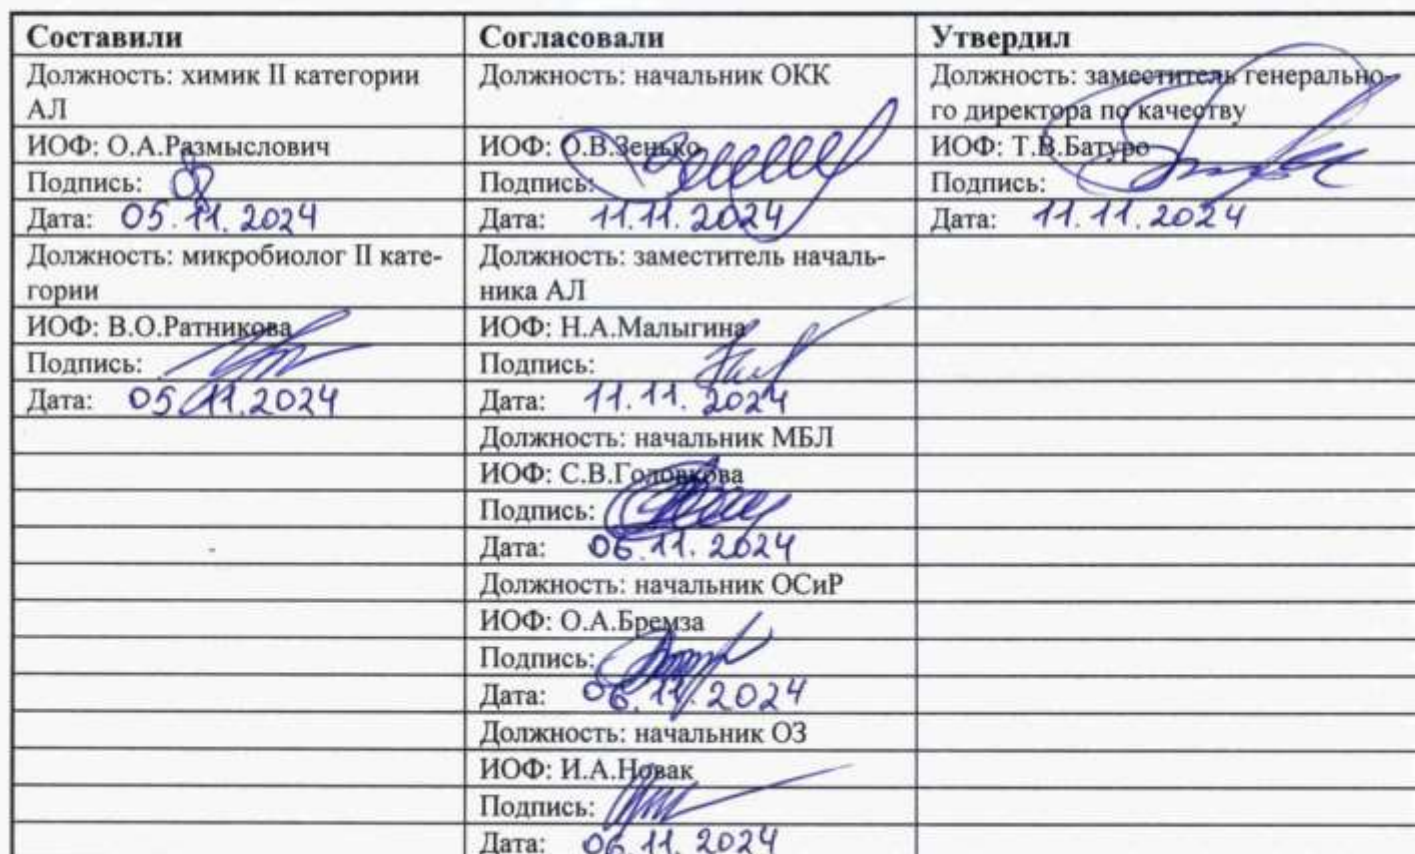 Составили Согласовали Утвердил
Должность: химик II категории Должность: начальник ОКК Должность: заместитель генерально-
АЛ го директора по качеству
ИОФ: О.А.Размыслович ИОФ: О.В.Зенько ИОФ: Т.В.Батуро
Подпись: Подпись: Подпись:
Дата: 05.11.2024 Дата: 11.11.2024 Дата: 11.11.2024
Должность: микробиолог II кате- Должность: заместитель началь-
гории ника АЛ
ИОФ: В.О.Ратникова ИОФ: Н.А.Малыгина
Подпись: Подпись:
Дата: 05.11.2024 Дата: 11.11.2024
Должность: начальник МБЛ
ИОФ: С.В.Головкова
Подпись:
Дата: 06.11.2024
Должность: начальник ОСиР
ИОФ: О.А.Бремза
Подпись:
Дата: 06.11.2024
Должность: начальник ОЗ
ИОФ: И.А.Новак
Подпись:
Дата: 06.11.2024